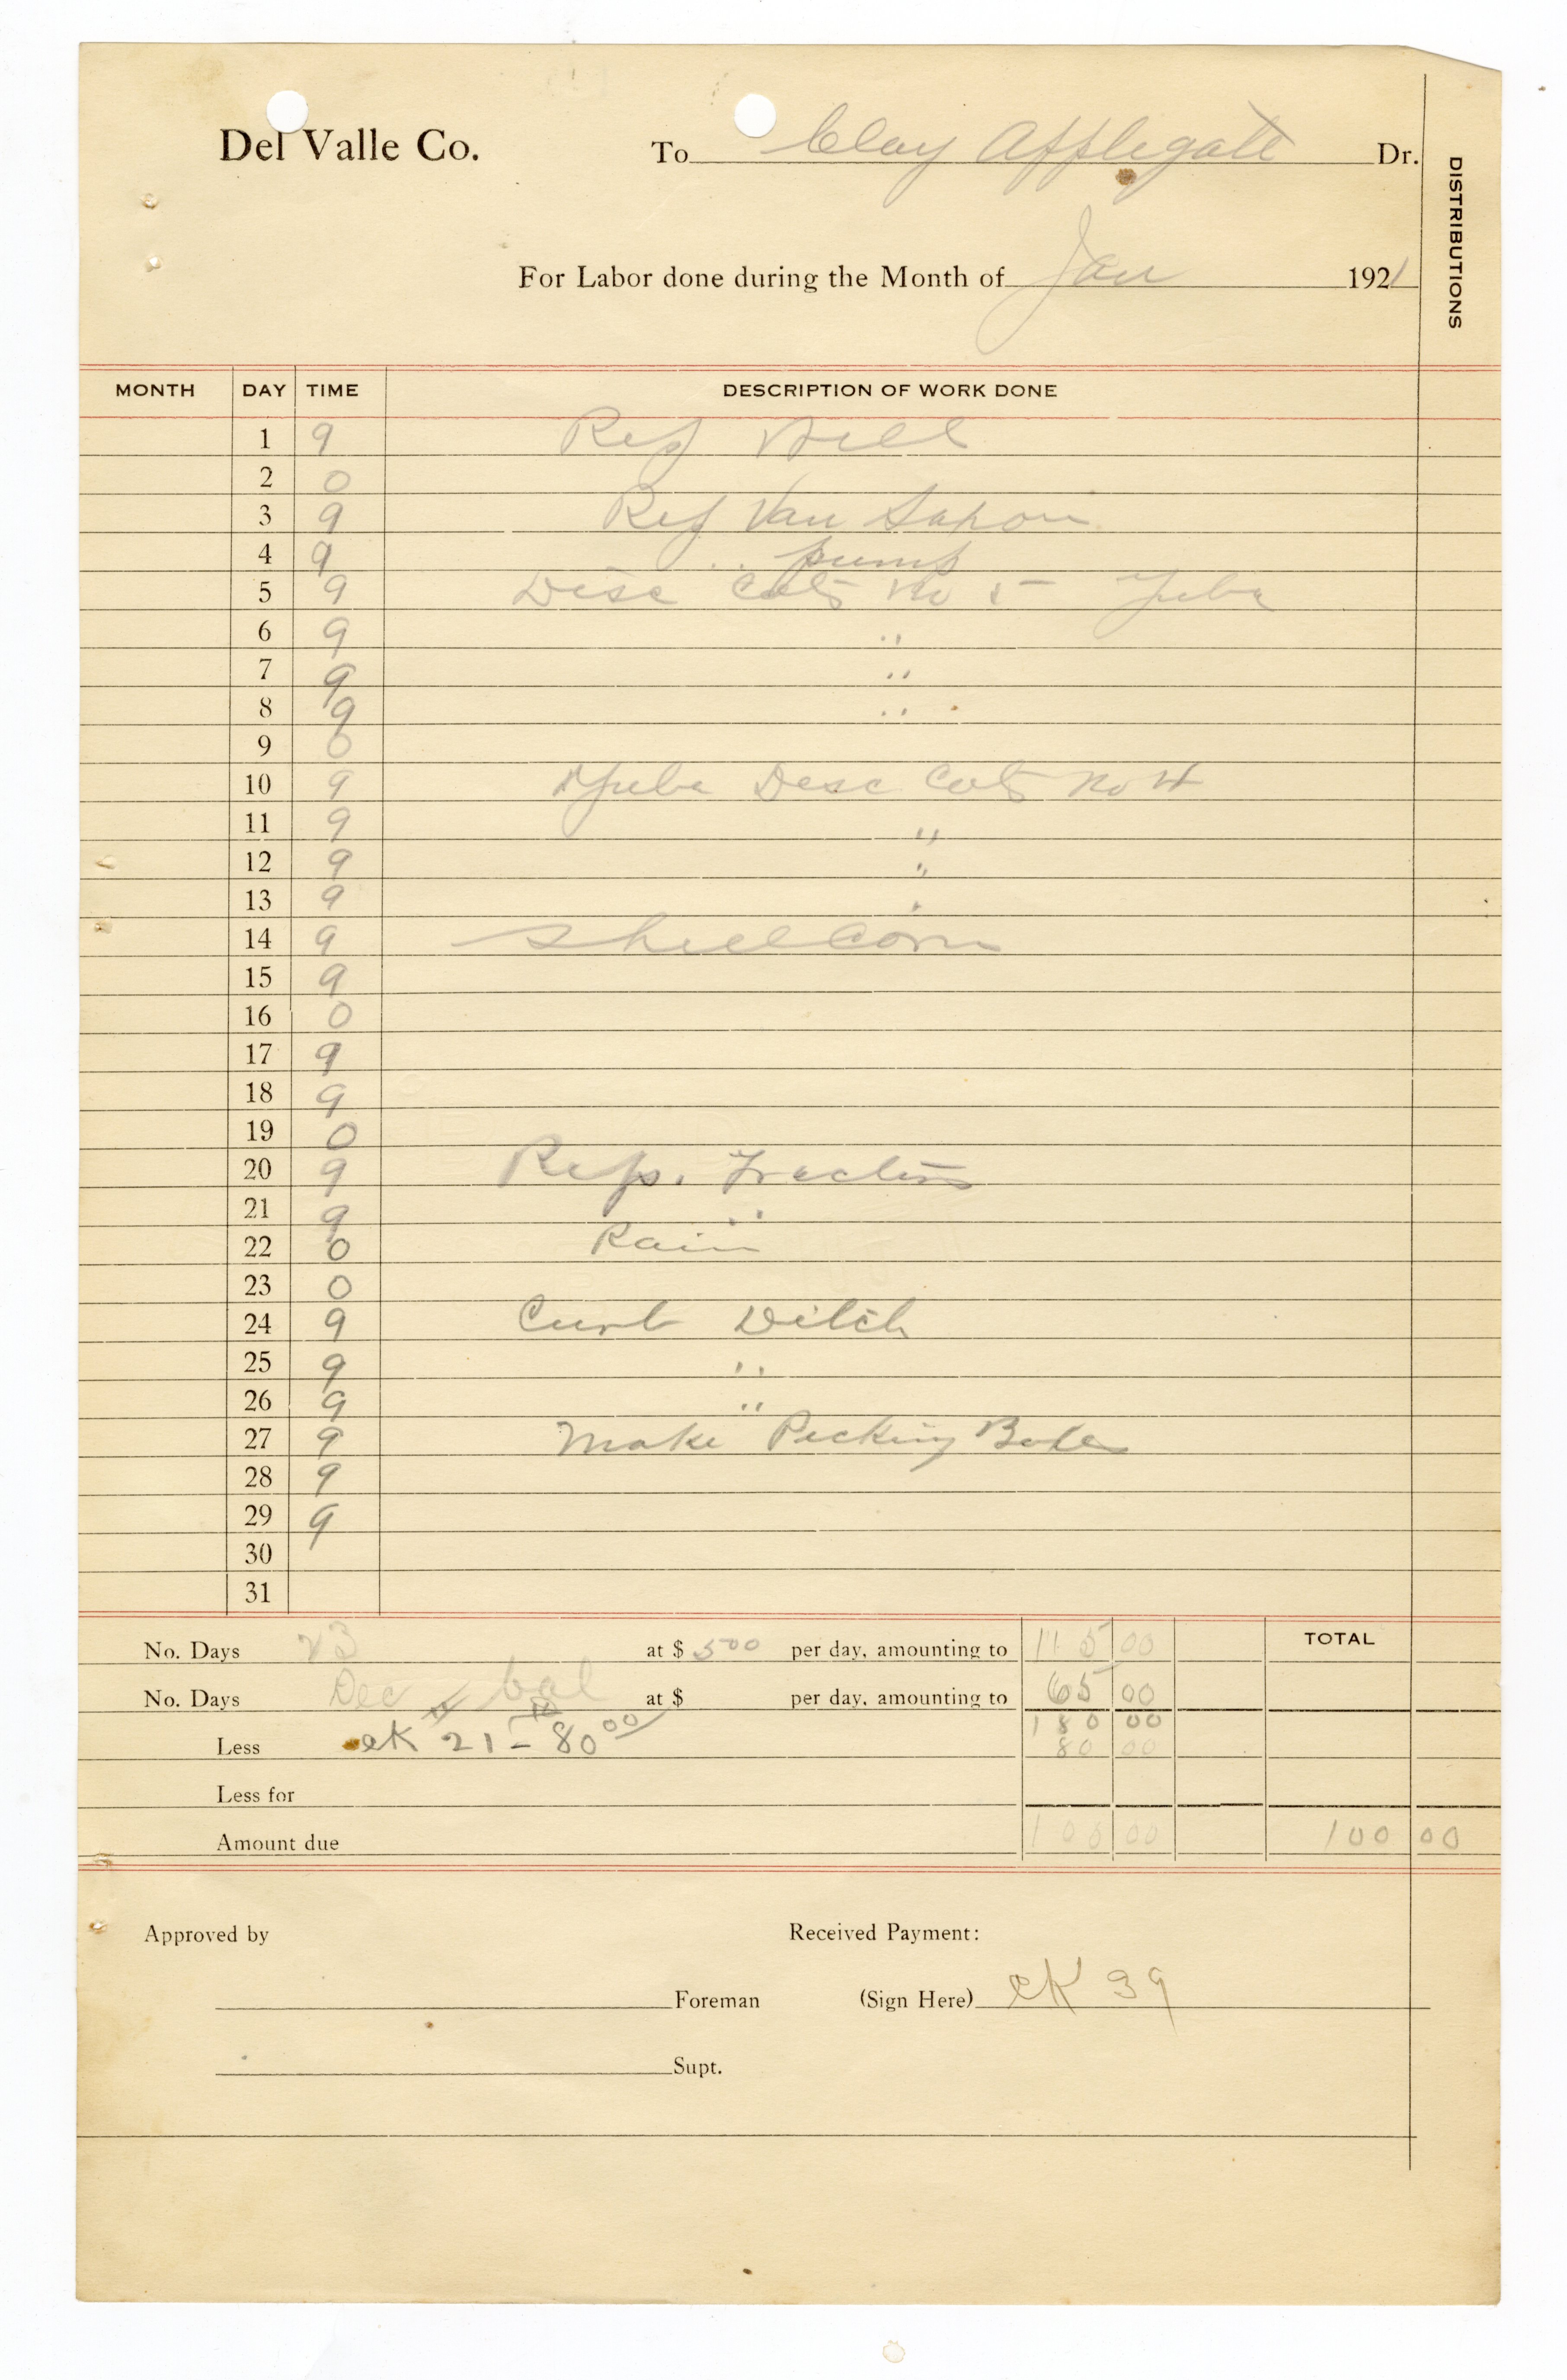 Del Valle Co. To Clay Applegate Dr.
DISTRIBUTIONS
For Labor done during the Month of Jan 1921
MONTH DAY TIME DESCRIPTION OF WORK DONE
1 9 Rep
2 0
3 9 Rep Van
4 9 .. pump
5 9 Disc No 5 Yuba
6 9 ..
7 9 ..
8 9 ..
9 0
10 9 Yuba Disc No 4
11 9 "
12 9 "
13 9 "
14 9 Shell Corn
15 9
16 0
17 9
18 9
19 0
20 9 Rep. Tractor
21 9 ..
22 0 Rain
23 0
24 9 Ditch
25 9 ..
26 9 ..
27 9 Make Picking Boxes
28 9
29 9
30
31
No. Days 23 at $ 500 per day, amounting to 115 00 TOTAL
No. Days Dec bal at $ per day, amounting to 65 00
180 00
Less ck 21 - 80 00 80 00
Less for
Amount due 100 00 100 00
Approved by Received Payment:
Foreman (Sign Here) ck 39
Supt.